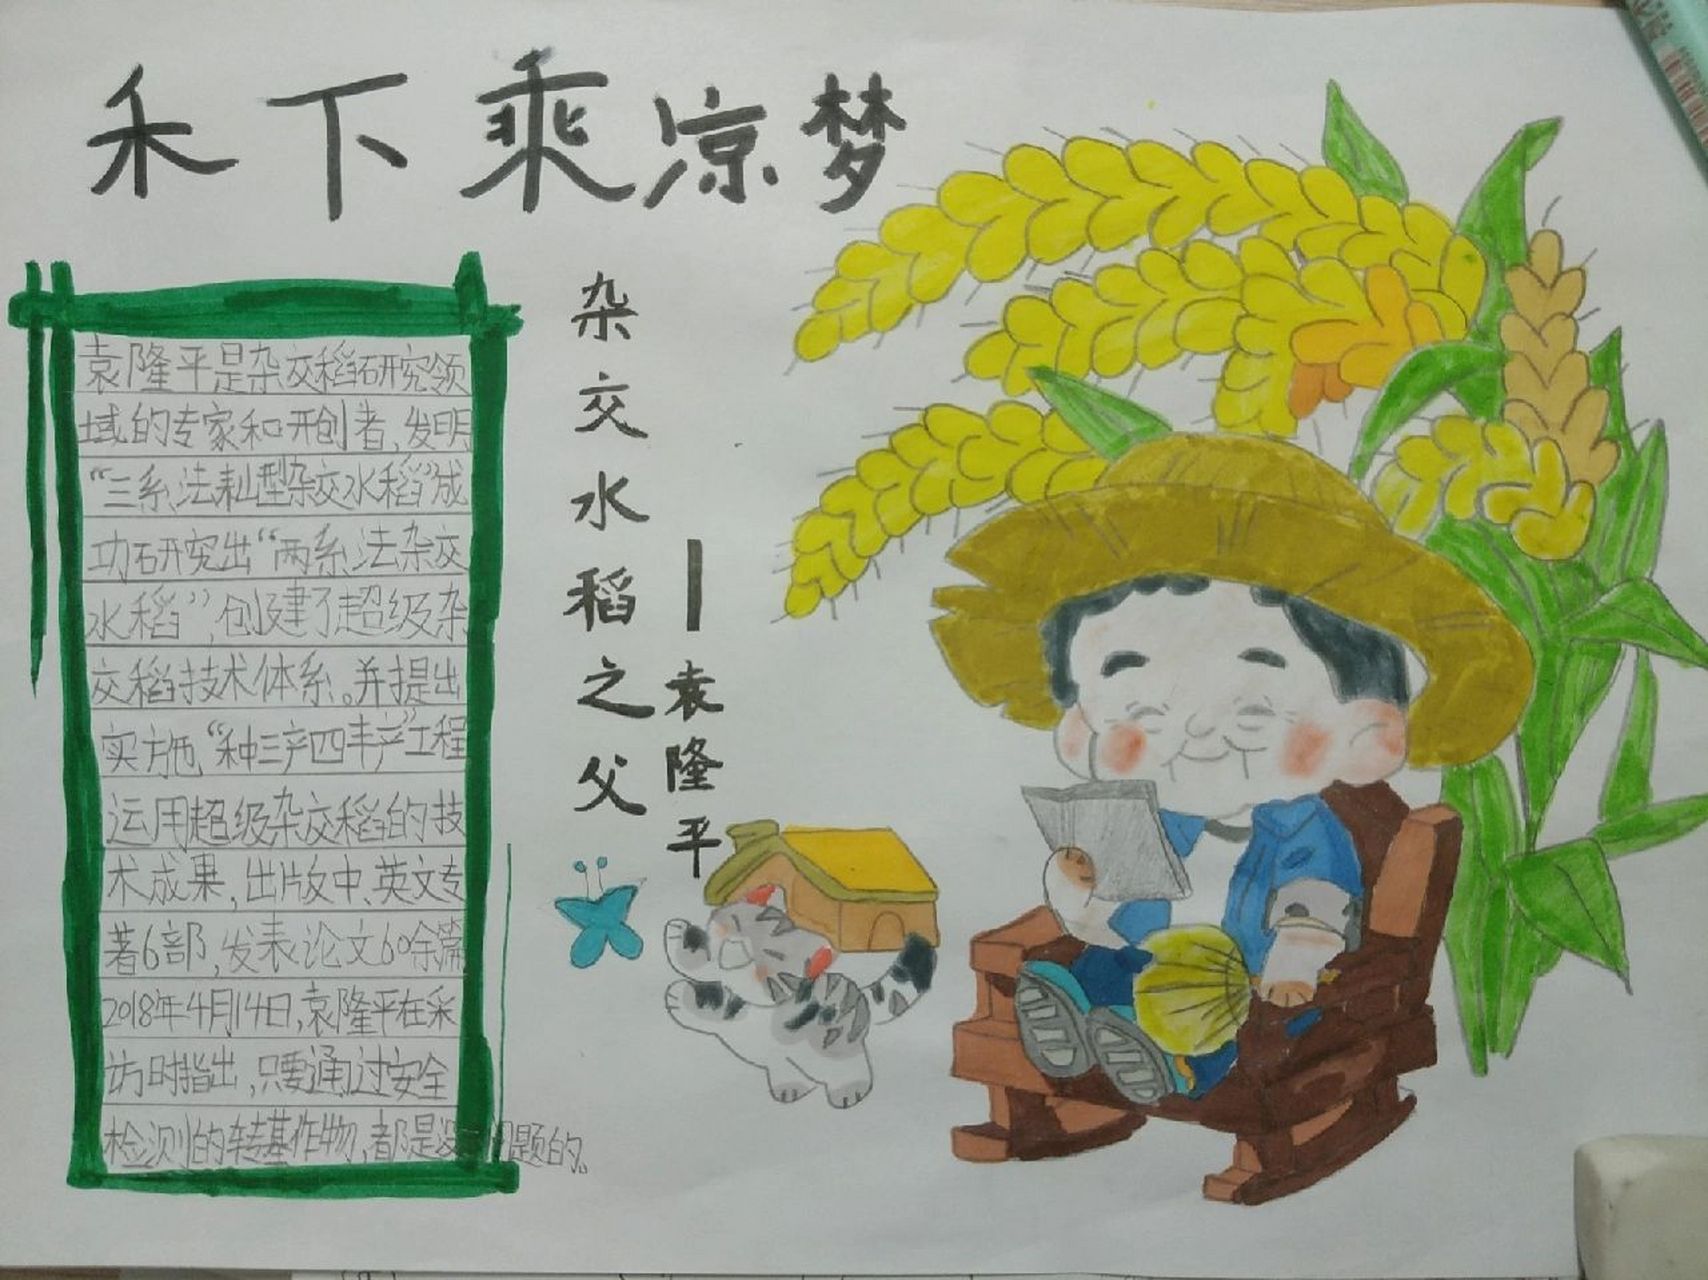 禾下乘凉梦
杂交水稻之父
—袁隆平
袁隆平是杂交稻研究领
域的专家和开创者,发明
“三系法籼型杂交水稻”成
功研究出“两系法杂交
水稻”,创建了超级杂
交稻技术体系。并提出
实施“种三产四丰产”工程
运用超级杂交稻的技
术成果,出版中、英文专
著6部,发表论文60余篇
2018年4月14日,袁隆平在采
访时指出,只要通过安全
检测的转基作物,都是没问题的。